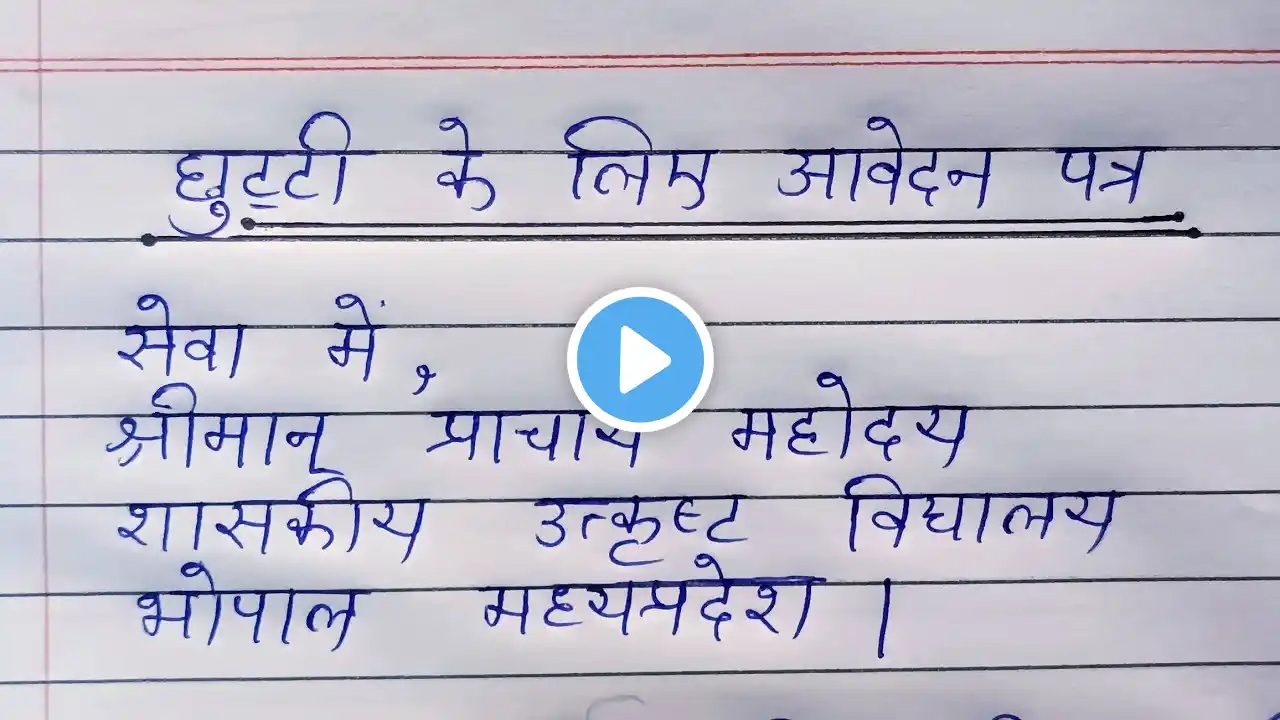 छुट्टी के लिए आवेदन पत्र
सेवा में,
श्रीमान् प्राचार्य महोदय
शासकीय उत्कृष्ट विद्यालय
भोपाल मध्यप्रदेश।